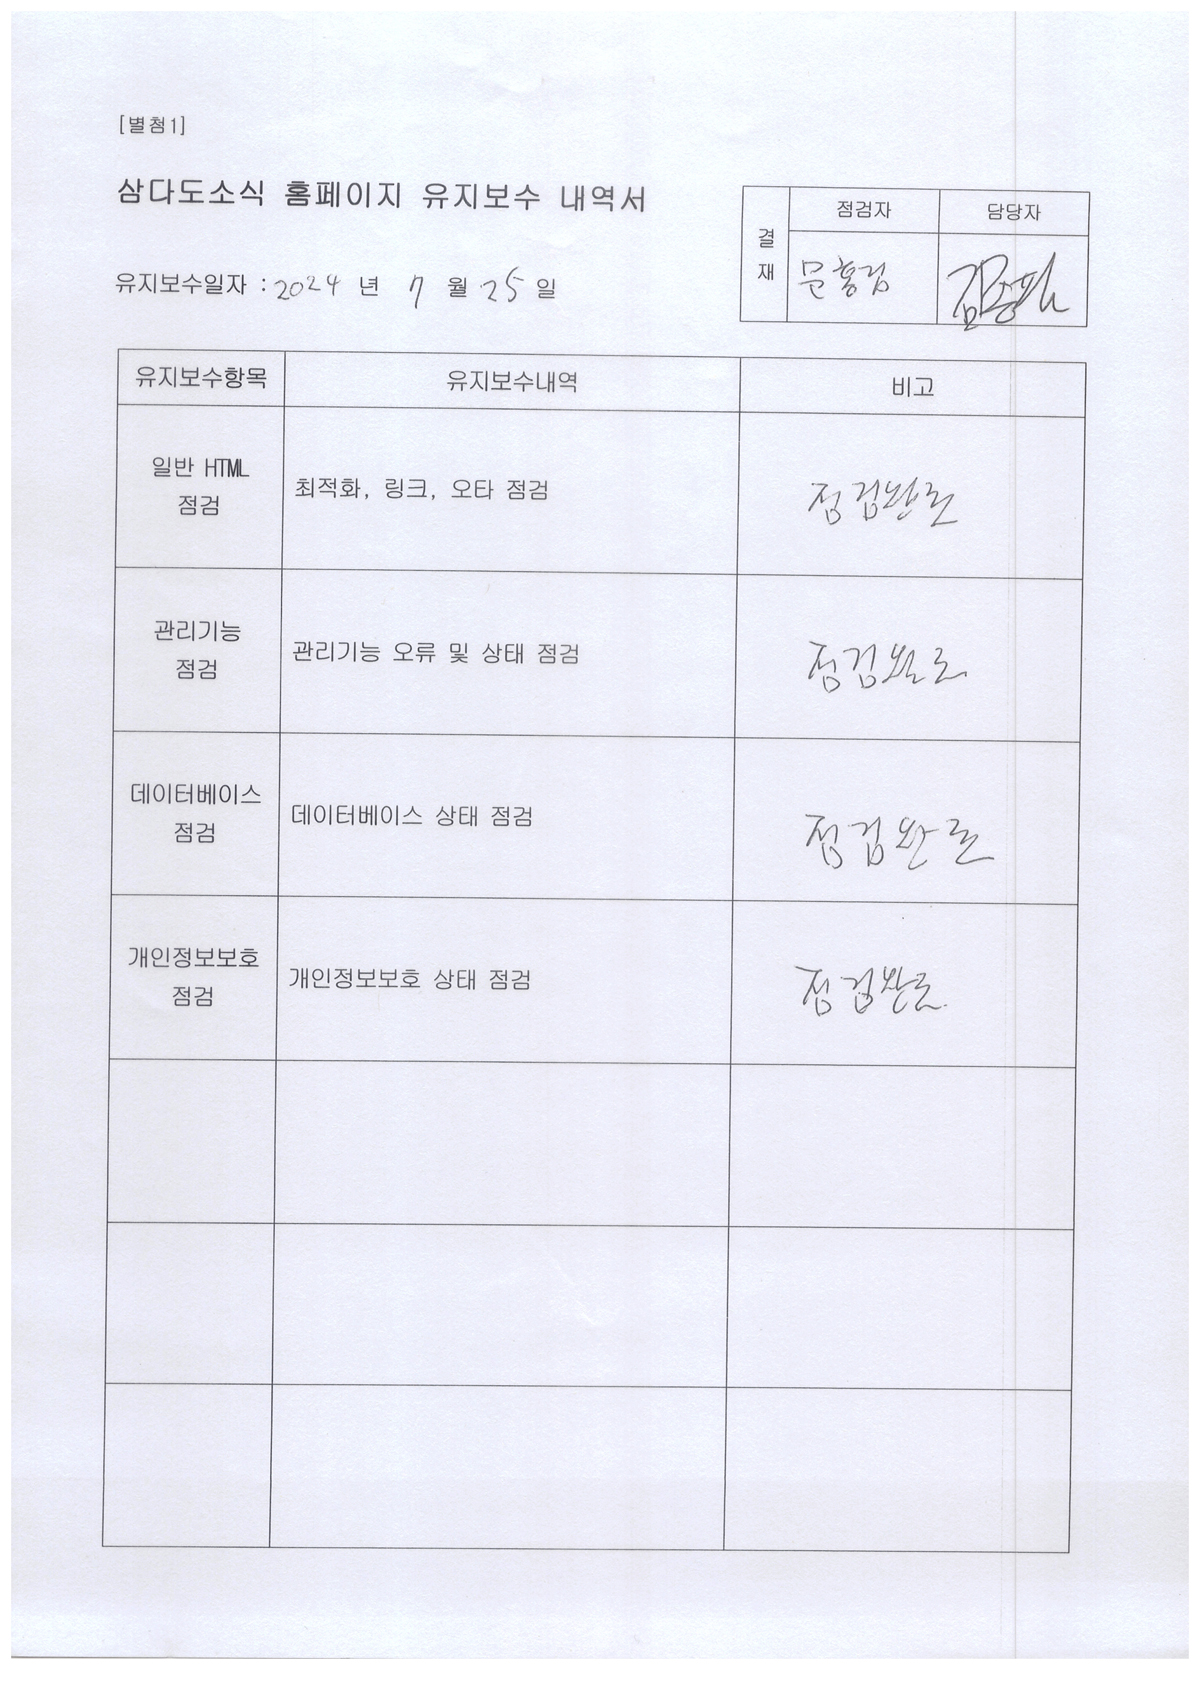 [별첨1]
삼다도소식 홈페이지 유지보수 내역서
결재
점검자
담당자
유지보수일자 : 2024 년 7 월 25 일
유지보수항목
유지보수내역
비고
일반 HTML
점검
최적화, 링크, 오타 점검
점검완료
관리기능
점검
관리기능 오류 및 상태 점검
점검완료
데이터베이스
점검
데이터베이스 상태 점검
점검완료
개인정보보호
점검
개인정보보호 상태 점검
점검완료